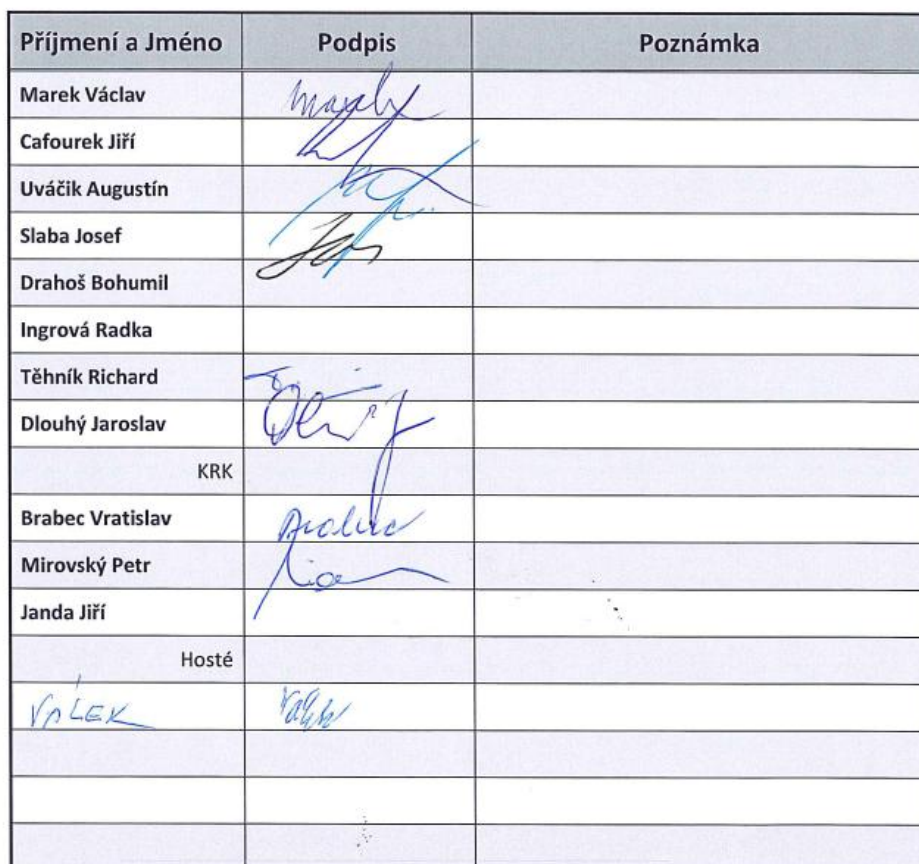 Příjmení a Jméno Podpis Poznámka
Marek Václav
Cafourek Jiří
Uváčik Augustín
Slaba Josef
Drahoš Bohumil
Ingrová Radka
Těhník Richard
Dlouhý Jaroslav
KRK
Brabec Vratislav
Mirovský Petr
Janda Jiří
Hosté
VÁLEK